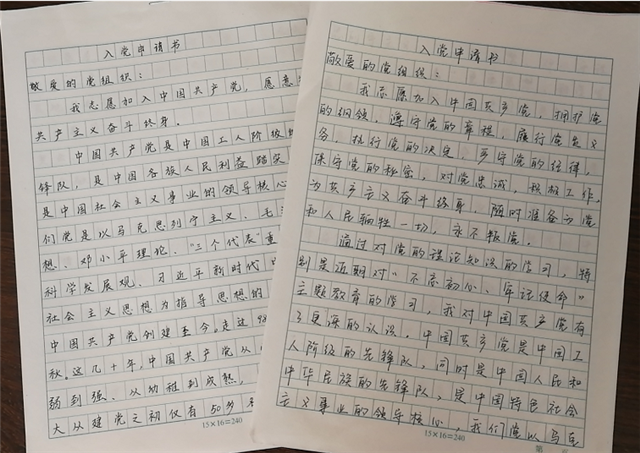 入党申请书
敬爱的党组织：
我志愿加入中国共产党，愿意
共产主义奋斗终身。
中国共产党是中国工人阶级的
锋队，是中国各族人民利益踏实
是中国社会主义事业的领导核心
们党是以马克思列宁主义、毛
想、邓小平理论、“三个代表”重
科学发展观、习近平新时代
社会主义思想为指导思想的
中国共产党创建至今。走过98
秋。这几十年，中国共产党从
弱到强、从幼稚到成熟，
大从建党之初仅有50多
15×16=240
入党申请书
敬爱的党组织：
我志愿加入中国共产党，拥护党
的纲领，遵守党的章程，履行党员义
务，执行党的决定，严守党的纪律，
保守党的秘密，对党忠诚，积极工作，
为共产主义奋斗终身，随时准备为党
和人民牺牲一切，永不叛党。
通过对党的理论知识的学习，特
别是近期对“不忘初心、牢记使命”
主题教育的学习，我对中国共产党有
了更深的认识。中国共产党是中国工
人阶级的先锋队，同时是中国人民和
中华民族的先锋队，是中国特色社会
主义事业的领导核心，我们党以马克
15×16=240
第